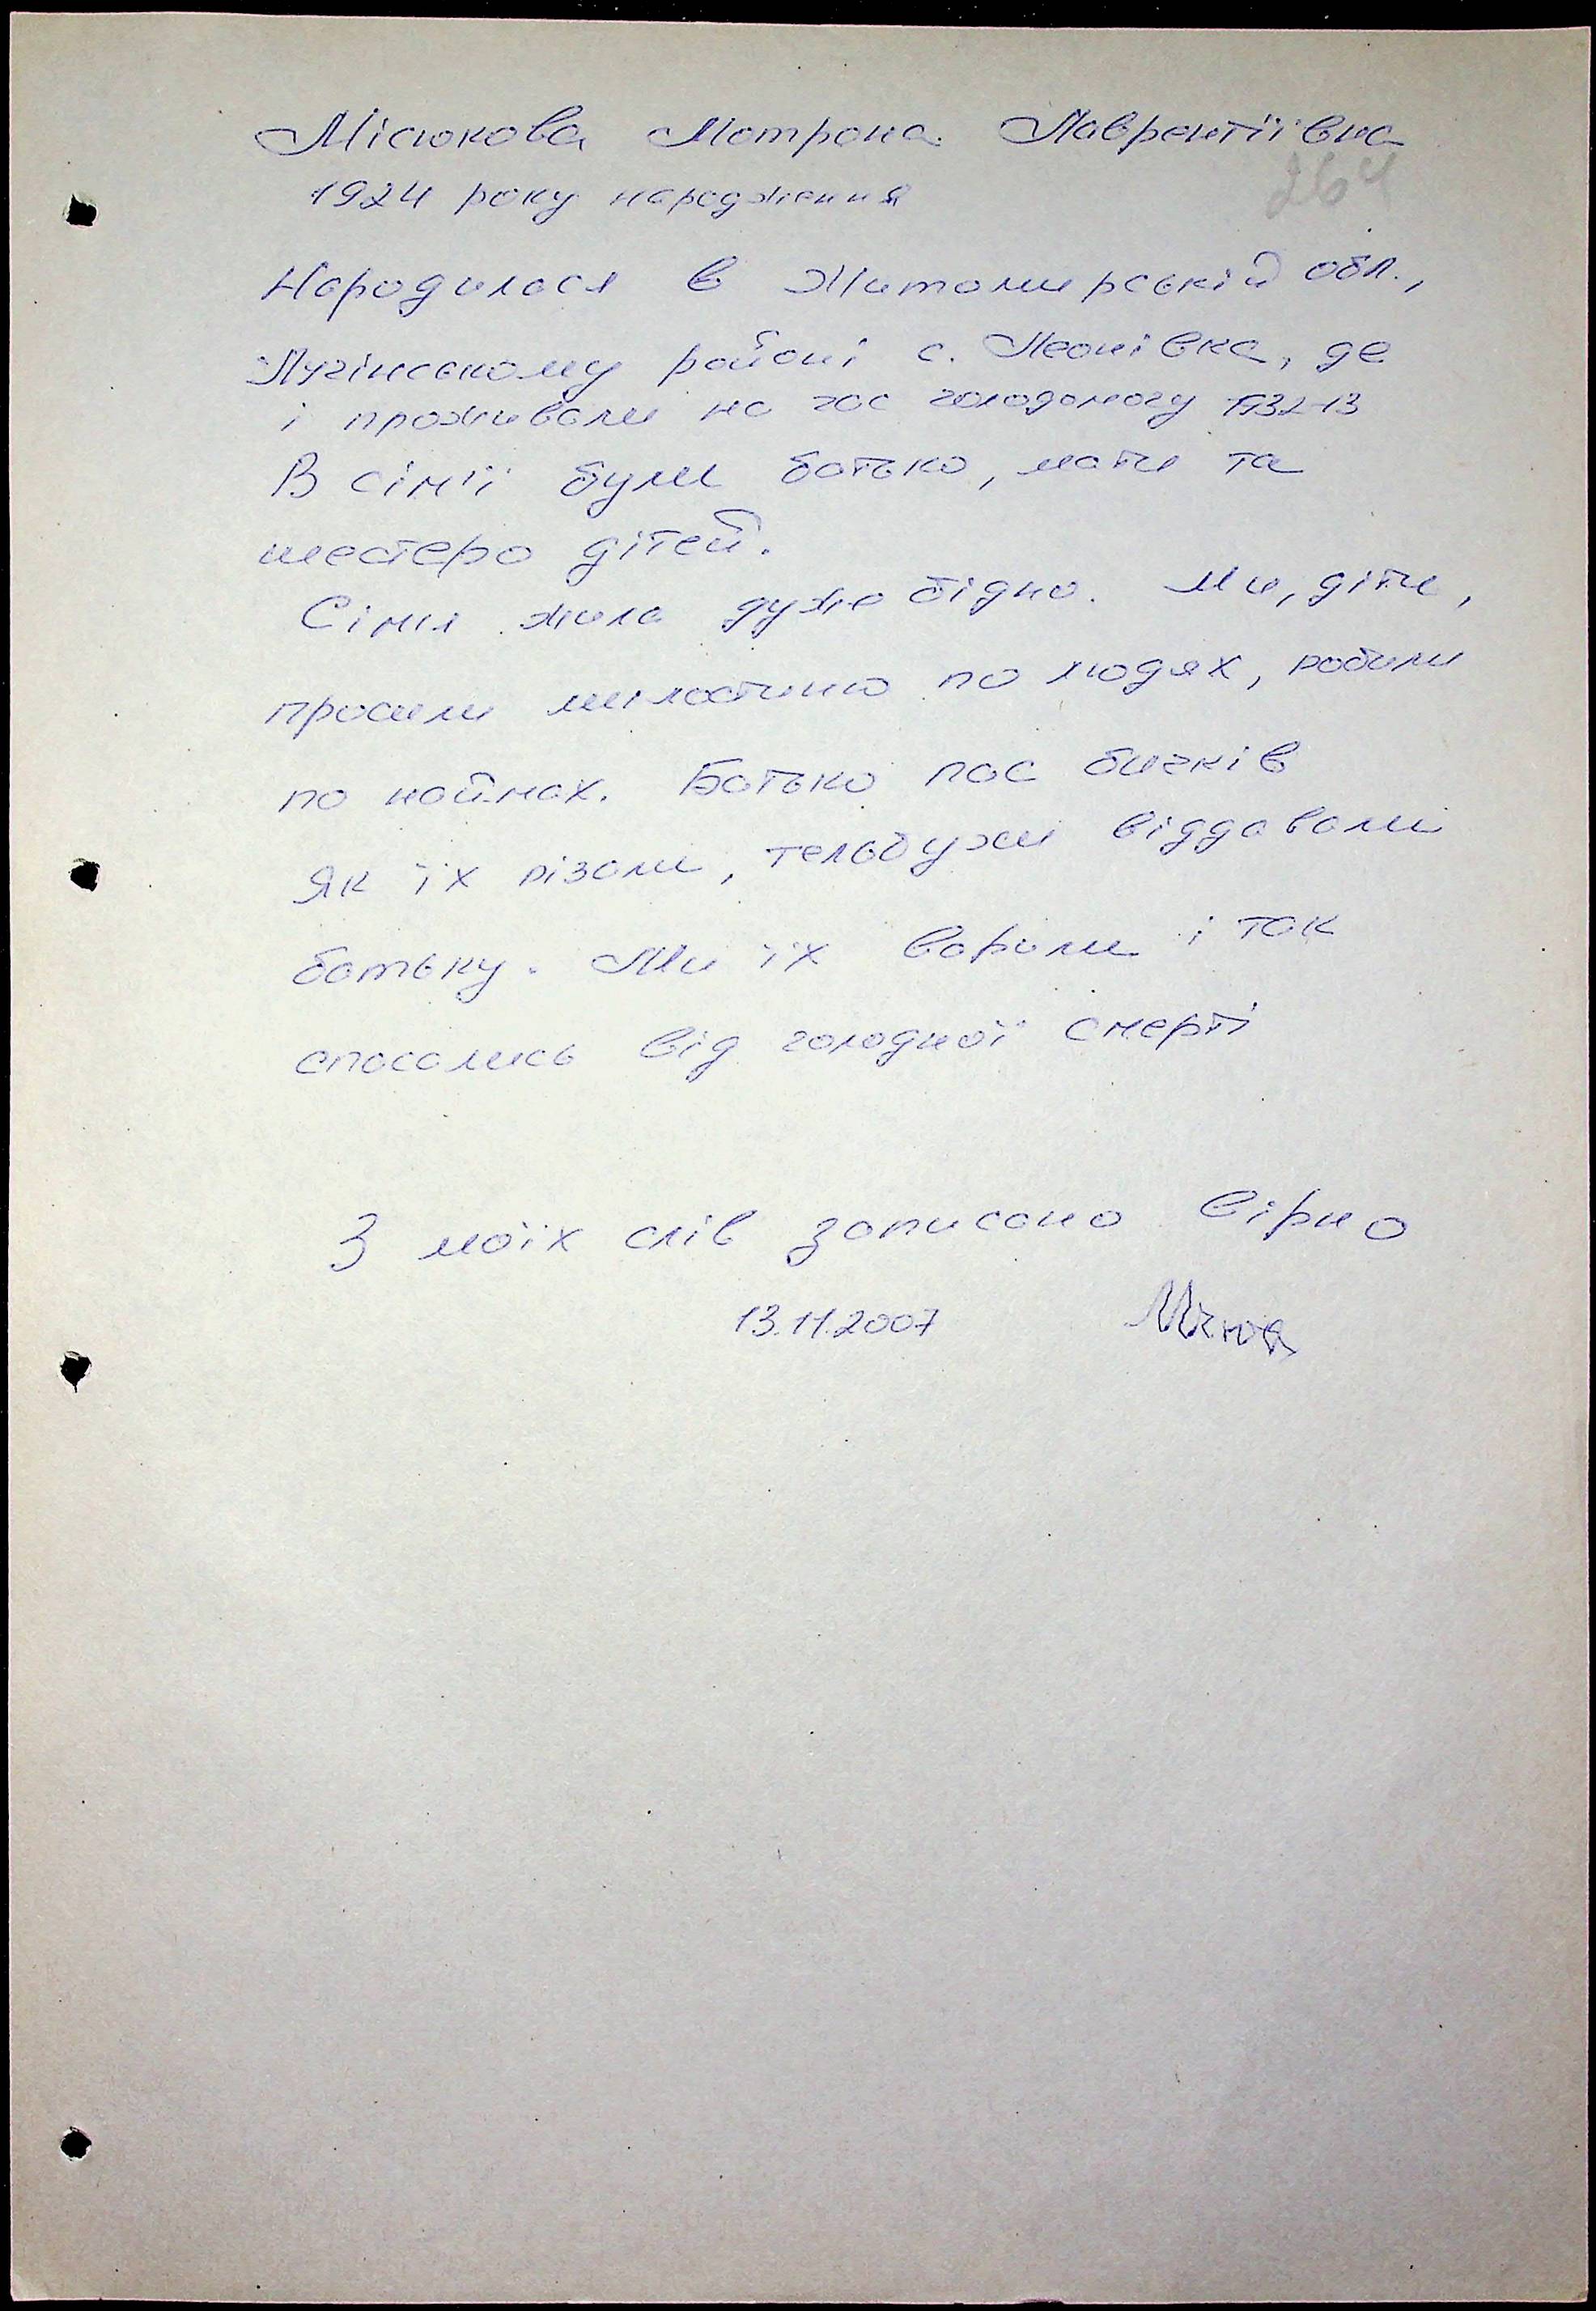 Місюкова Мотрона Лаврентіївна
264
1924 року народження
Народилася в Житомирській обл.,
Лугінському районі с. Леонівка, де
і проживали на час голодомору 1932-13
В сім'ї були батько, мати та
шестеро дітей.
Сім'я жила дуже бідно. Ми, діти,
просили милостиню по людях, робили
по наймах. Батько пас бичків
Як їх різали, тельбухи віддавали
батьку. Ми їх варили і так
спасались від голодної смерті
З моїх слів записано вірно
13.11.2007